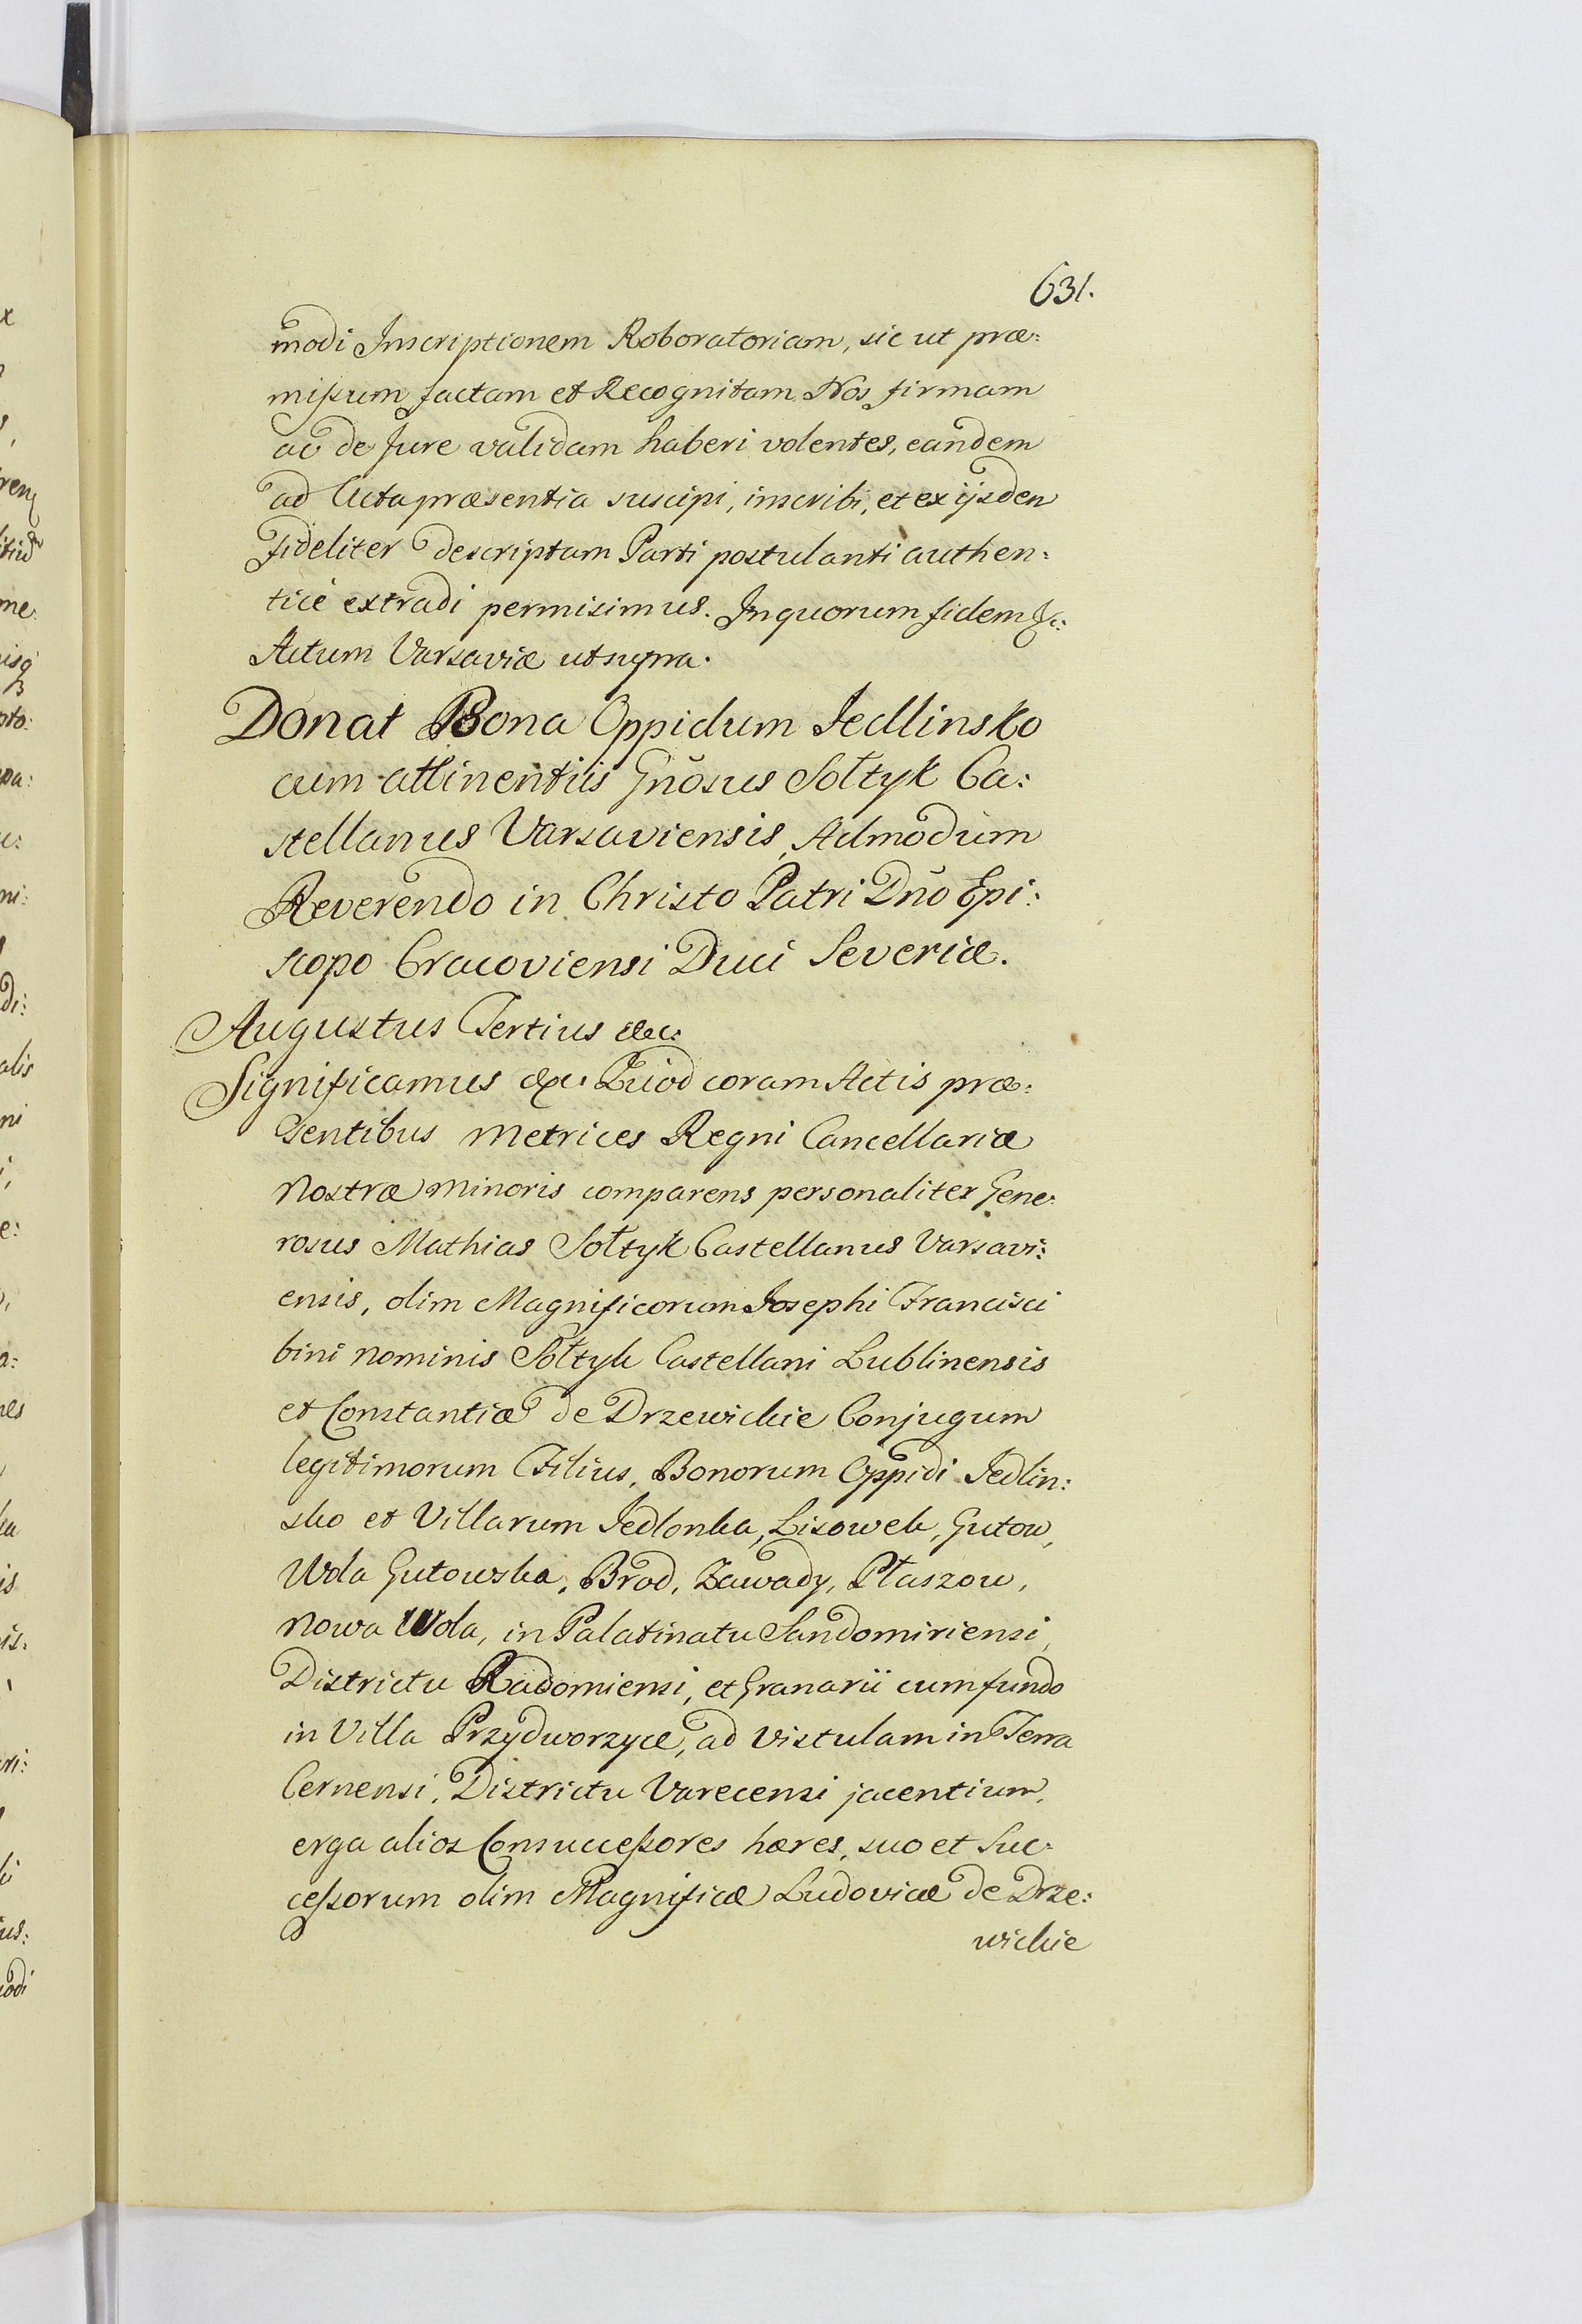 631.
modi Inscriptionem Roboratoriam, sic ut præ:
mißum factam et Recognitam Nos firmam
ac de Jure validam haberi volentes, eandem
ad Acta præsentia suscipi, inscribi, et ex ijsdem
fideliter descriptam Parti postulanti authen:
tice extradi permisimus. In quorum fidem &c:
Actum Varsaviæ ut supra.
Donat Bona Oppidum Jedlinsko
cum attinentiis Gnõsus Sołtyk Ca:
stellanus Varsaviensis, Admodum
Reverendo in Christo Patri Dño Epi:
scopo Cracoviensi Duci Severiæ.
Augustus Tertius &c:
Significamus &c: Quod coram Actis præ:
sentibus Metrices Regni Cancellariæ
Nostræ Minoris comparens personaliter Gene:
rosus Mathias Sołtyk Castellanus Varsavi:
ensis, olim Magnificorum Josephi Francisci
bini nominis Sołtyk Castellani Lublinensis
et Constantiæ de Drzewickie Conjugum
legitimorum Filius, Bonorum Oppidi Jedlin:
sko et Villarum Jedlonka, Lisowek, Gutow,
Wola Gutowska, Brod, Zawady, Płaszow,
Nowa Wola, in Palatinatu Sandomiriensi,
Districtu Radomiensi, et Granarii cum fundo
in Villa Przydworzyce, ad Vistulam in Terra
Cernensi, Districtu Varecensi jacentium,
erga alios Consucceßores hæres, suo et Suc:
ceßorum olim Magnificæ Ludovicæ de Drze:
wickie